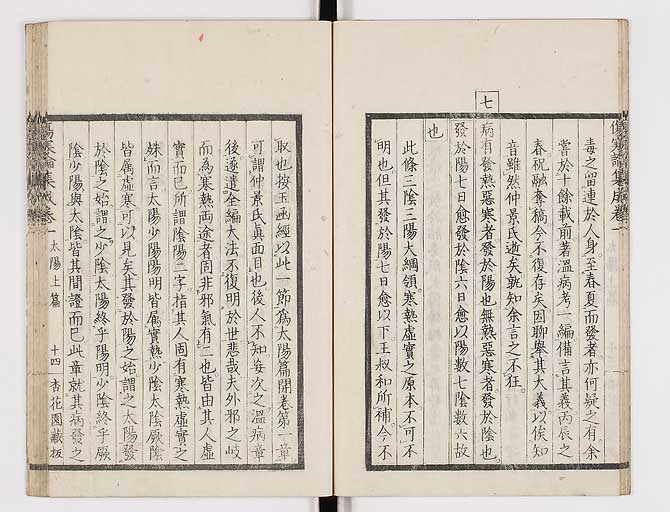 傷寒論集成卷一
毒之留連於人身至春夏而發者亦何疑之有余
嘗於十餘載前著溫病考一編備言其義丙辰之
春祝融奪稿今不復存矣因聊舉其大義以俟知
音雖然仲景氏逝矣孰知余言之不狂
七
病有發熱惡寒者發於陽也無熱惡寒者發於陰也
發於陽七日愈發於陰六日愈以陽數七陰數六故
也
此條三陰三陽大綱領寒熱虛實之原本不可不
明也但其發於陽七日愈以下王叔和所補今不
取也按玉函經以此一節爲太陽篇開卷第一章
可謂仲景氏眞面目也後人不知妄次之溫病章
後遂遣全編大法不復明於世悲哉夫外邪之岐
而為寒熱兩途者固非邪氣有二也皆由其人虛
實而已所謂陰陽二字指其人固有寒熱虛實之
殊而言太陽少陽陽明皆屬實熱少陰太陰厥陰
皆屬虛寒可以見矣其發於陽之始謂之太陽發
於陰之始謂之少陰太陽終乎陽明少陰終乎厥
陰少陽與太陰皆其間證而已此章就其病發之
傷寒論集成卷一 太陽上篇 十四 杏花園藏板